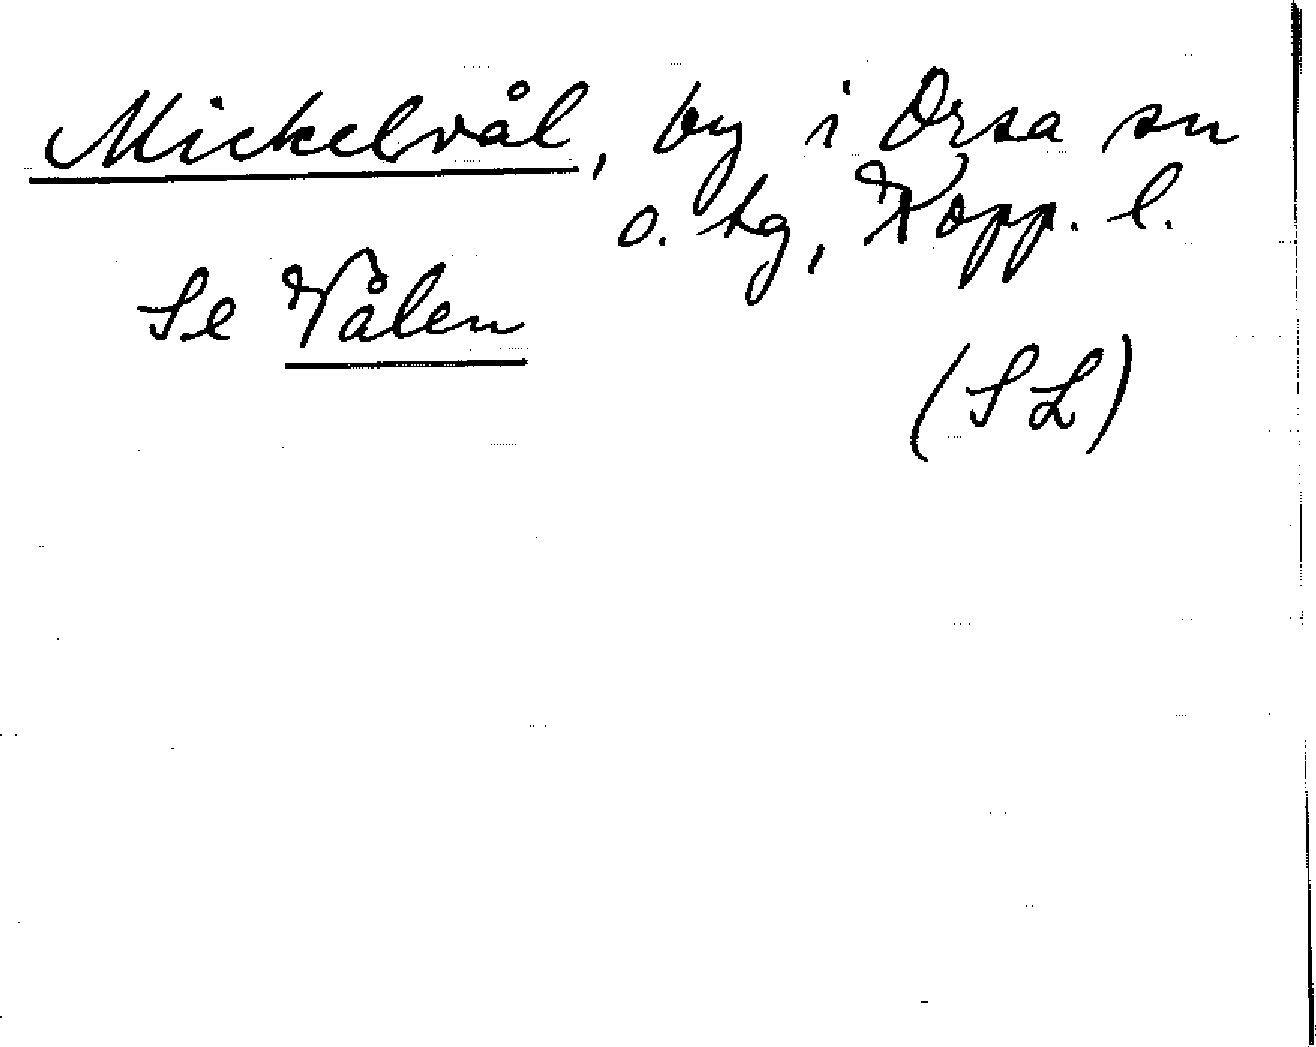 Mickelvål, by i Orsa sn
o. tg, Kopp. l.
Se Vålen
(SL)